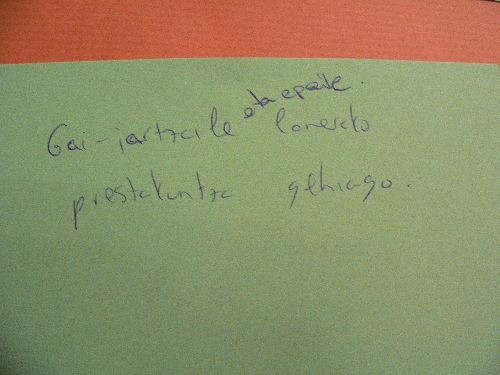 Gai-jartzaile eta epaile lanerako
prestakuntza gehiago.